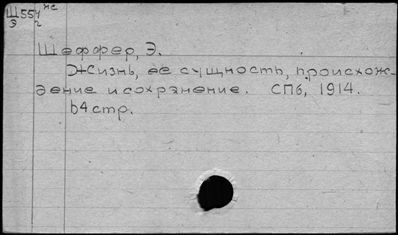 Ш554 нс
Э 2
Шеффер, Э.
Жизнь, ее сущность, происхож-
дение и сохранение. СПб, 1914.
64 стр.